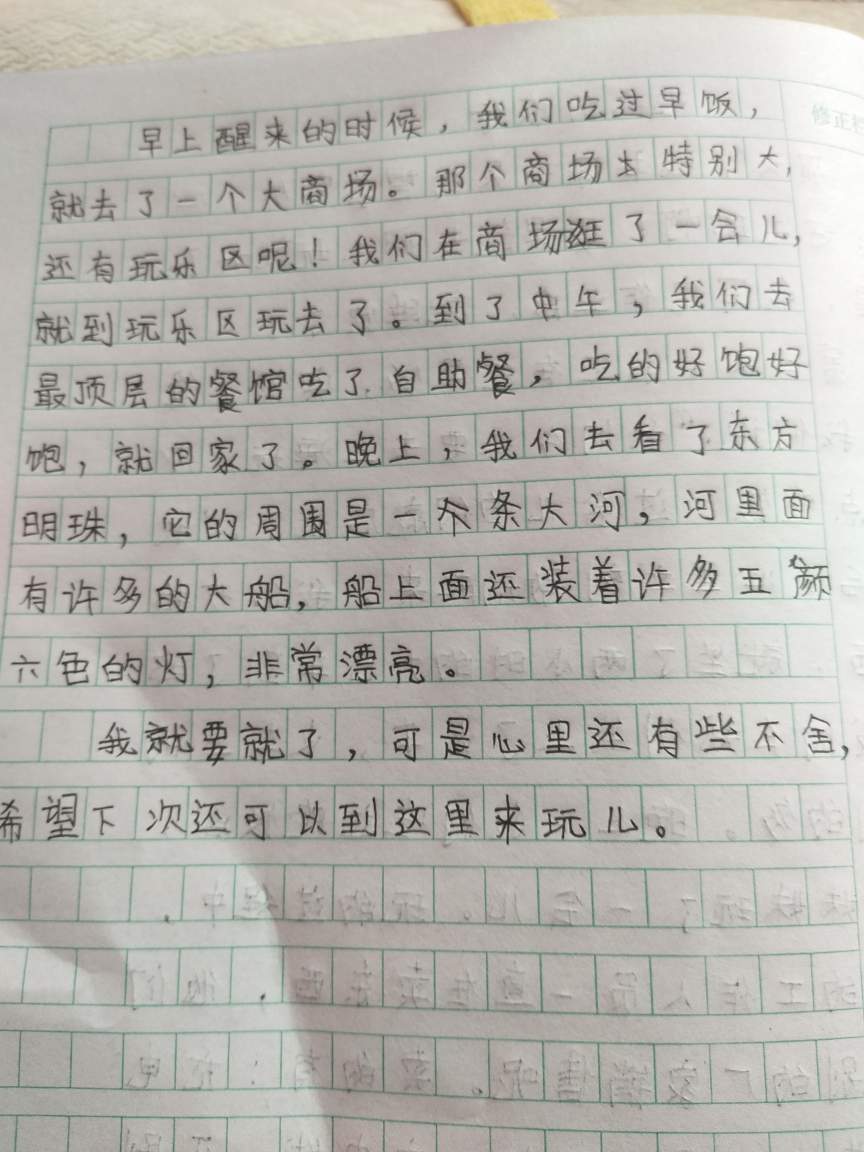 早上醒来的时候，我们吃过早饭，
就去了一个大商场。那个商场特别大，
还有玩乐区呢！我们在商场逛了一会儿，
就到玩乐区玩去了。到了中午，我们去
最顶层的餐馆吃了自助餐，吃的好饱好
饱，就回家了。晚上，我们去看了东方
明珠，它的周围是一条大河，河里面
有许多的大船，船上面还装着许多五颜
六色的灯，非常漂亮。
我就要就了，可是心里还有些不舍，
希望下次还可以到这里来玩儿。